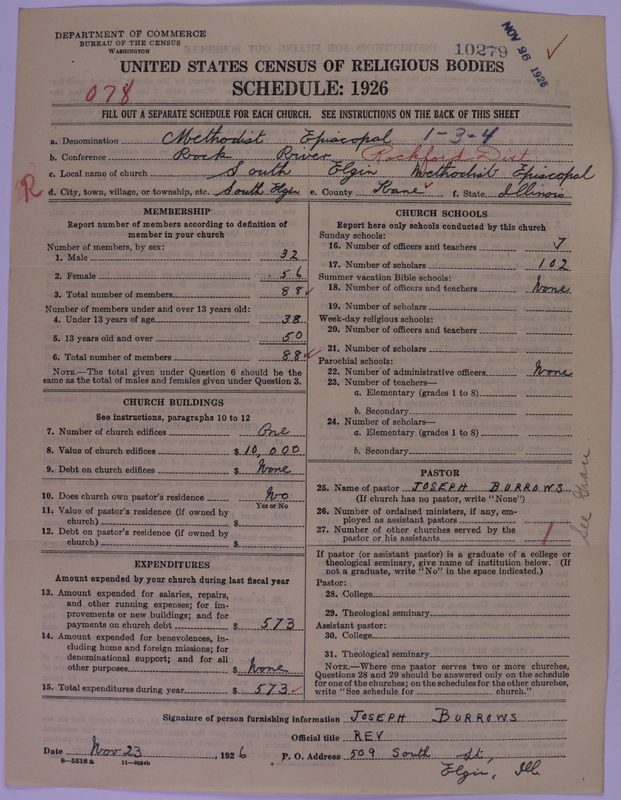 DEPARTMENT OF COMMERCE
BUREAU OF THE CENSUS
WASHINGTON
10279
NOV 26 1926
UNITED STATES CENSUS OF RELIGIOUS BODIES
078
SCHEDULE: 1926
FILL OUT A SEPARATE SCHEDULE FOR EACH CHURCH. SEE INSTRUCTIONS ON THE BACK OF THIS SHEET
a. Denomination Methodist Episcopal 1-3-4
b. Conference Rock River Rockford Dist
c. Local name of church South Elgin Methodist Episcopal
R d. City, town, village, or township, etc. South Elgin e. County Kane f. State Illinois
MEMBERSHIP
Report number of members according to definition of
member in your church
Number of members, by sex:
1. Male 32
2. Female 56
3. Total number of members 88
Number of members under and over 13 years old:
4. Under 13 years of age 38
5. 13 years old and over 50
6. Total number of members 88
NOTE.—The total given under Question 6 should be
same as the total of males and females given under Question 3.
CHURCH BUILDINGS
See instructions, paragraphs 10 to 12
7. Number of church edifices One
8. Value of church edifices $ 10,000
9. Debt on church edifices $ None
10. Does church own pastor's residence No
Yes or No
11. Value of pastor's residence (if owned by
church) $
12. Debt on pastor's residence (if owned by
church) $
EXPENDITURES
Amount expended by your church during last fiscal year
13. Amount expended for salaries, repairs,
and other running expenses; for im-
provements or new buildings; and for
payments on church debt $ 573
14. Amount expended for benevolences, in-
cluding home and foreign missions; for
denominational support; and for all
other purposes $ None
15. Total expenditures during year $ 573
CHURCH SCHOOLS
Report here only schools conducted by this church
Sunday schools:
16. Number of officers and teachers 7
17. Number of scholars 102
Summer vacation Bible schools:
18. Number of officers and teachers None
19. Number of scholars
Week-day religious schools:
20. Number of officers and teachers
21. Number of scholars
Parochial schools:
22. Number of administrative officers None
23. Number of teachers—
a. Elementary (grades 1 to 8)
b. Secondary
24. Number of scholars—
a. Elementary (grades 1 to 8)
b. Secondary
PASTOR
25. Name of pastor JOSEPH BURROWS
(If church has no pastor, write "None")
26. Number of ordained ministers, if any, em-
ployed as assistant pastors
27. Number of other churches served by the
pastor or his assistants 1
See
If pastor (or assistant pastor) is a graduate of a college or
theological seminary, give name of institution below. (If
not a graduate, write "No" in the space indicated.)
Pastor:
28. College
29. Theological seminary
Assistant pastor:
30. College
31. Theological seminary
NOTE.—Where one pastor serves two or more churches,
Questions 28 and 29 should be answered only on the schedule
for one of the churches; on the schedules for the other churches,
write "See schedule for church."
Signature of person furnishing information JOSEPH BURROWS
Official title REV
Date Nov 23, 1926 P. O. Address 509 South St,
8-5516a 11-9054b
Elgin, Ill.